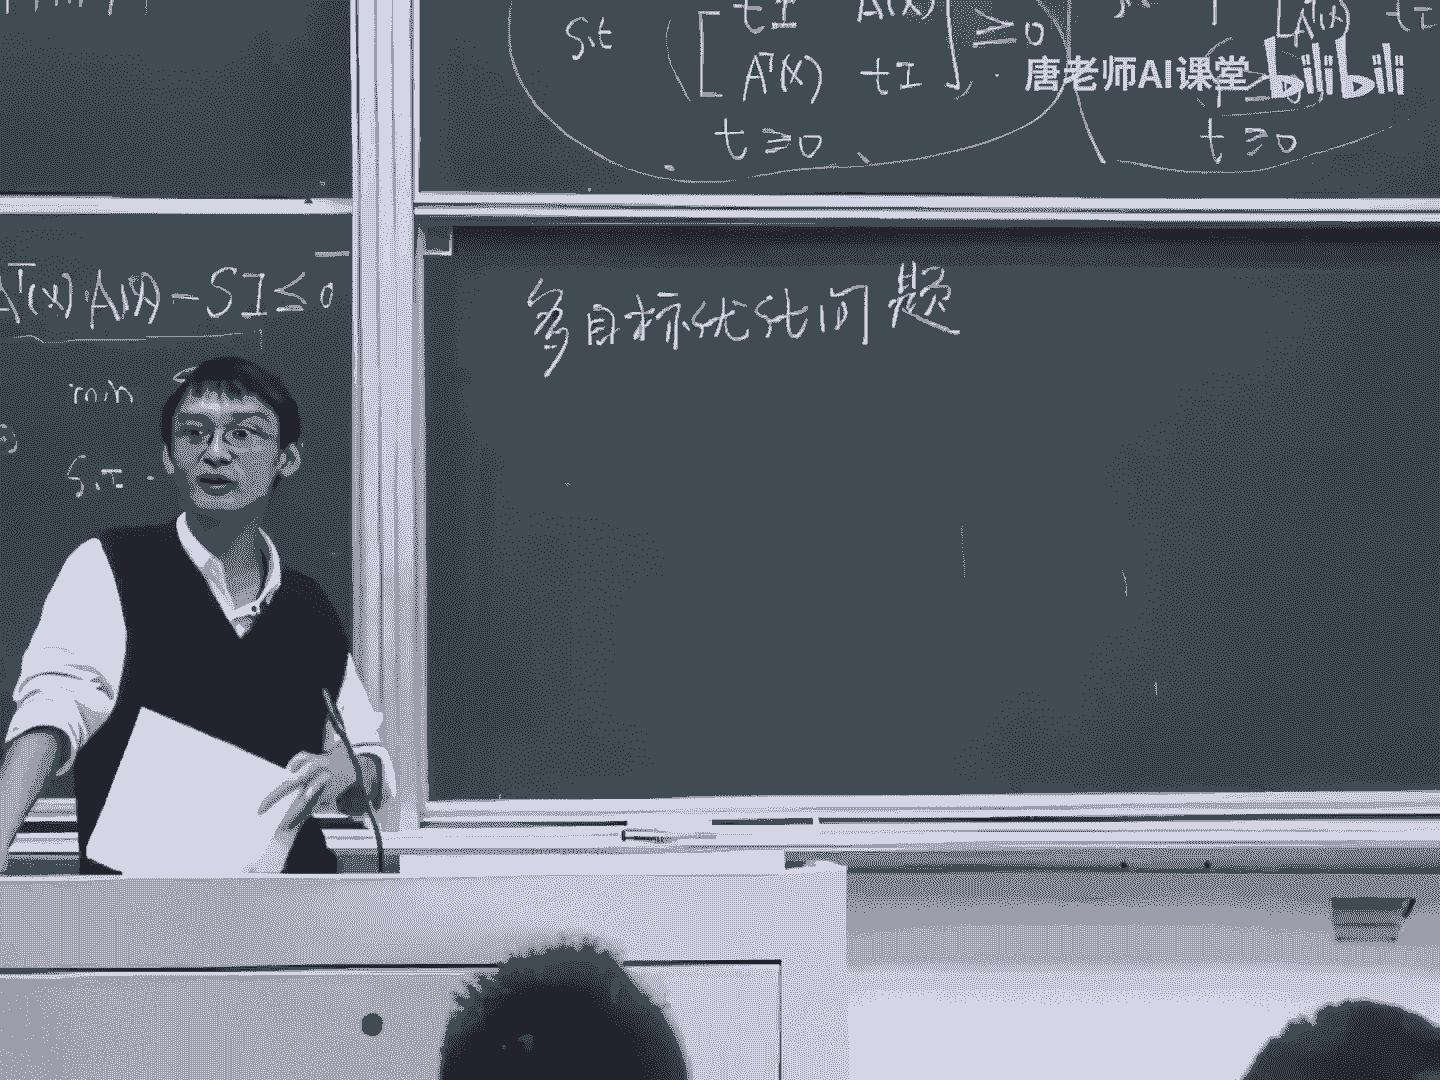 s.t [ tI A(x)
Aᵀ(x) tI ] ≥ 0
t ≥ 0
t ≥ 0
唐老师AI课堂 bilibili
Aᵀ(x)·A(x) - SI ≤ 0
min
s.t.
多目标优化问题